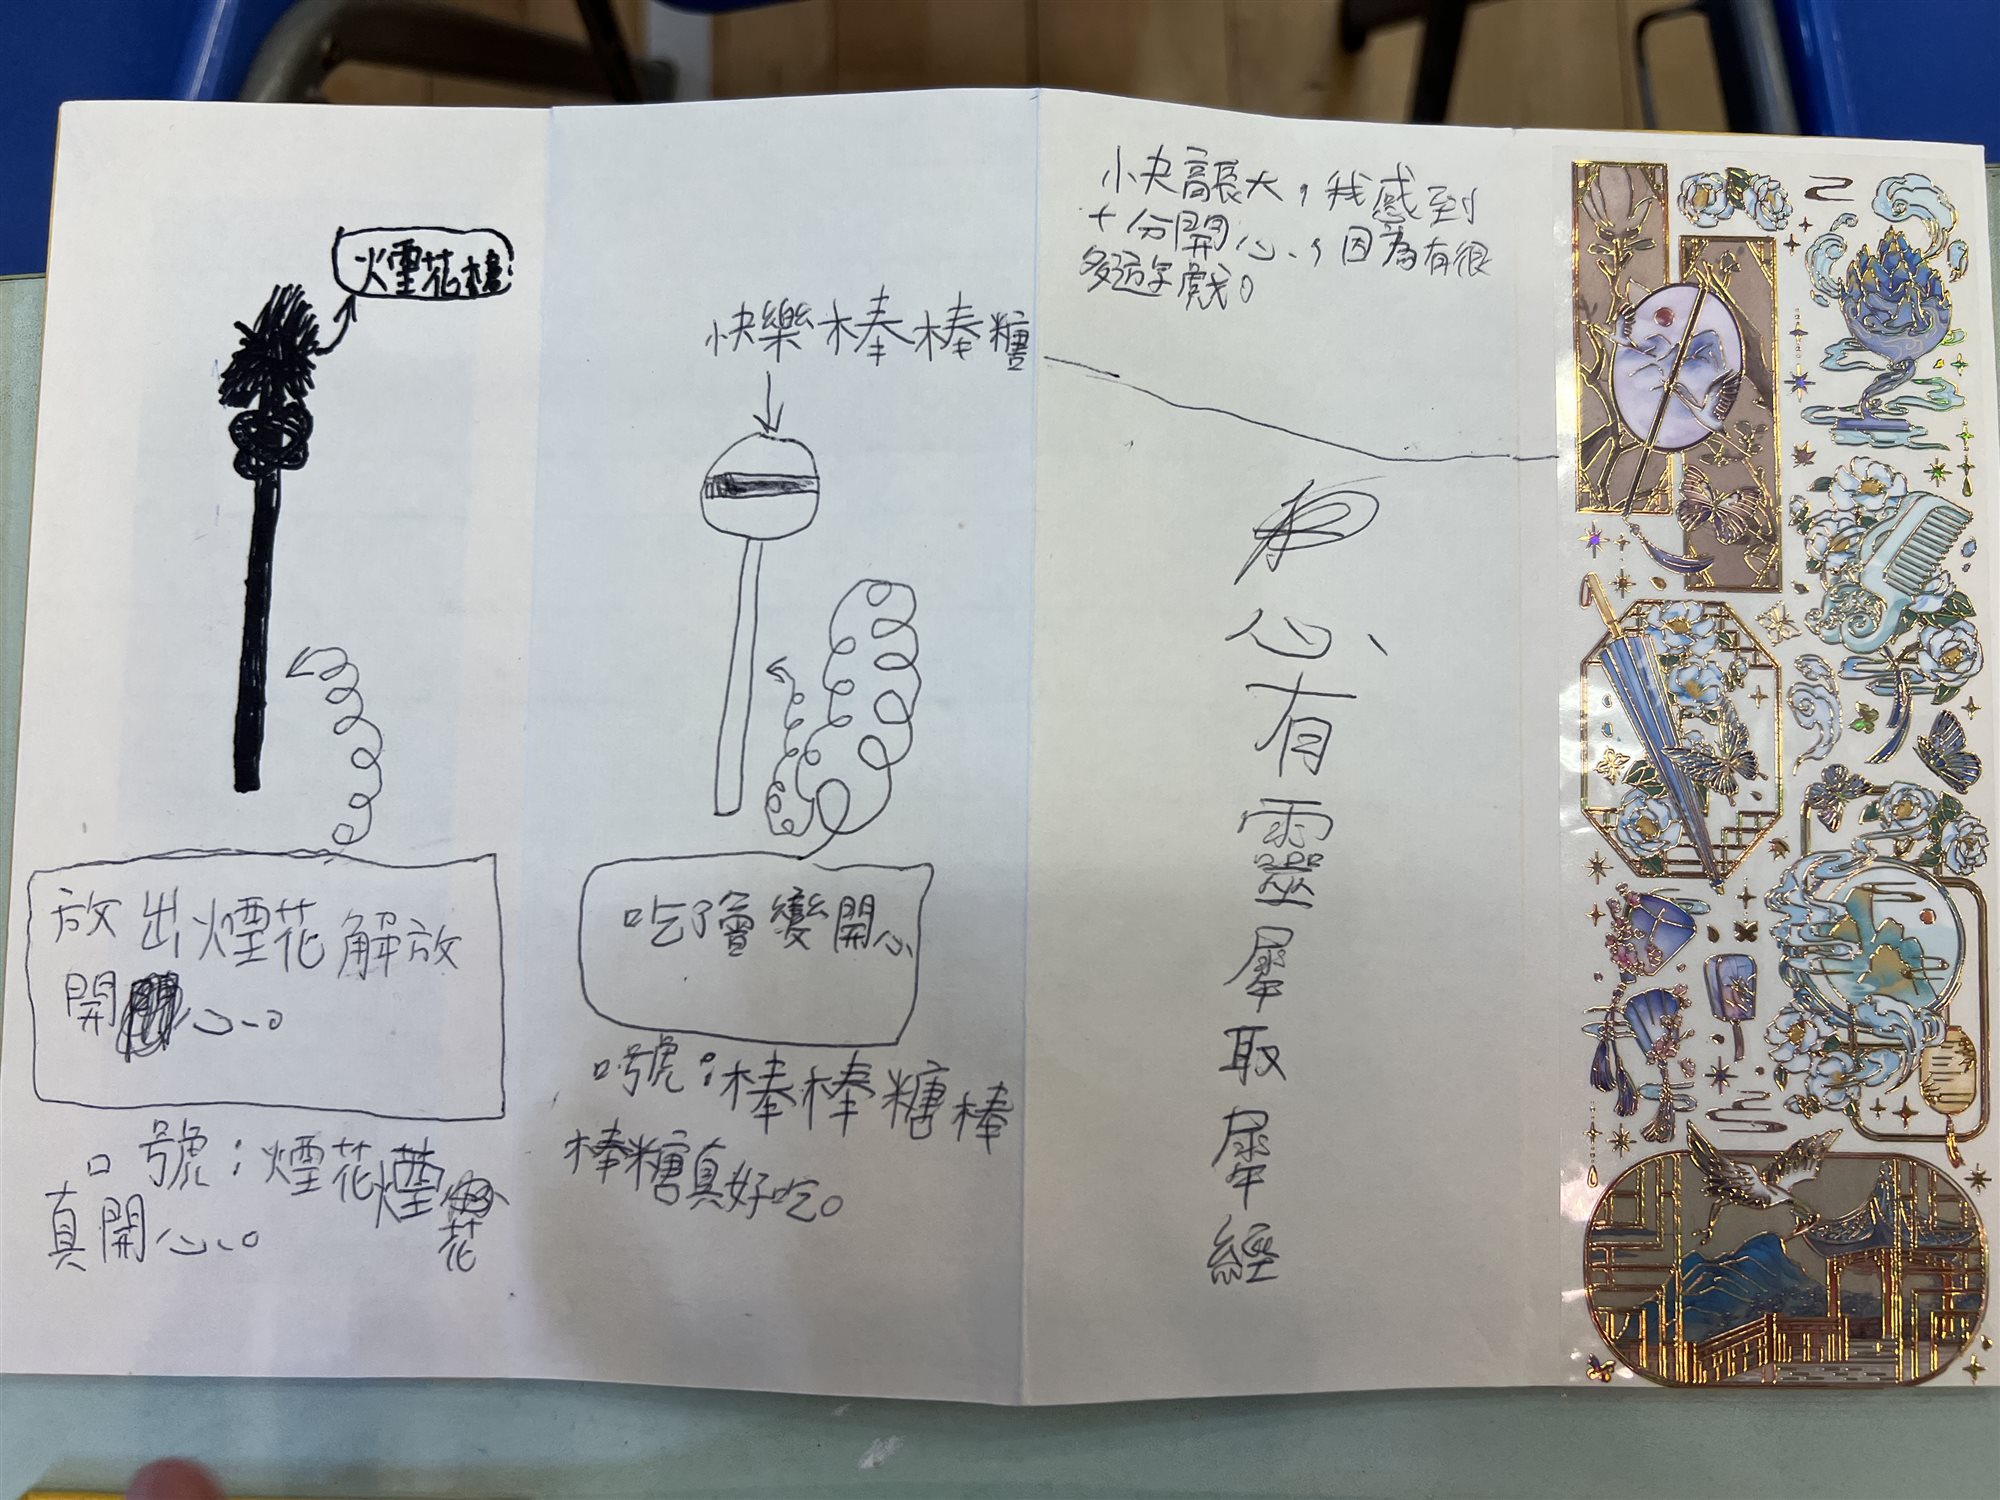 煙花棒
放出煙花解放
開心。
口號：煙花煙
花
真開心。
快樂棒棒糖
吃了會變開心
口號：棒棒糖棒
棒糖真好吃。
小夬高長大，我感到
十分開心，因為有很
多遊戲。
心
有
靈
犀
取
犀
經